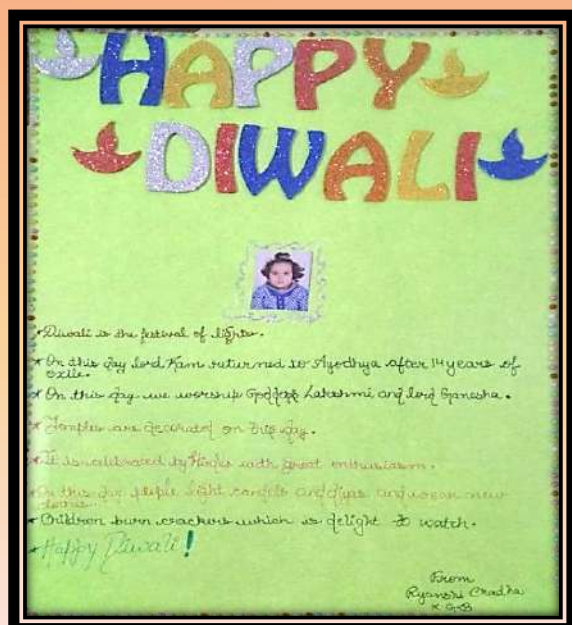 HAPPY
DIWALI
* Diwali is the festival of lights.
* On this day lord Ram returned to Ayodhya after 14 years of
exile.
* On this day we worship Goddess Lakshmi and lord Ganesha.
* Temples are decorated on this day.
* It is celebrated by Hindus with great enthusiasm.
* On this day people light candels and diyas and wear new
clothes...
* Children burn crackers which is delight to watch.
* Happy Diwali!
From
Chadha
K.G-B